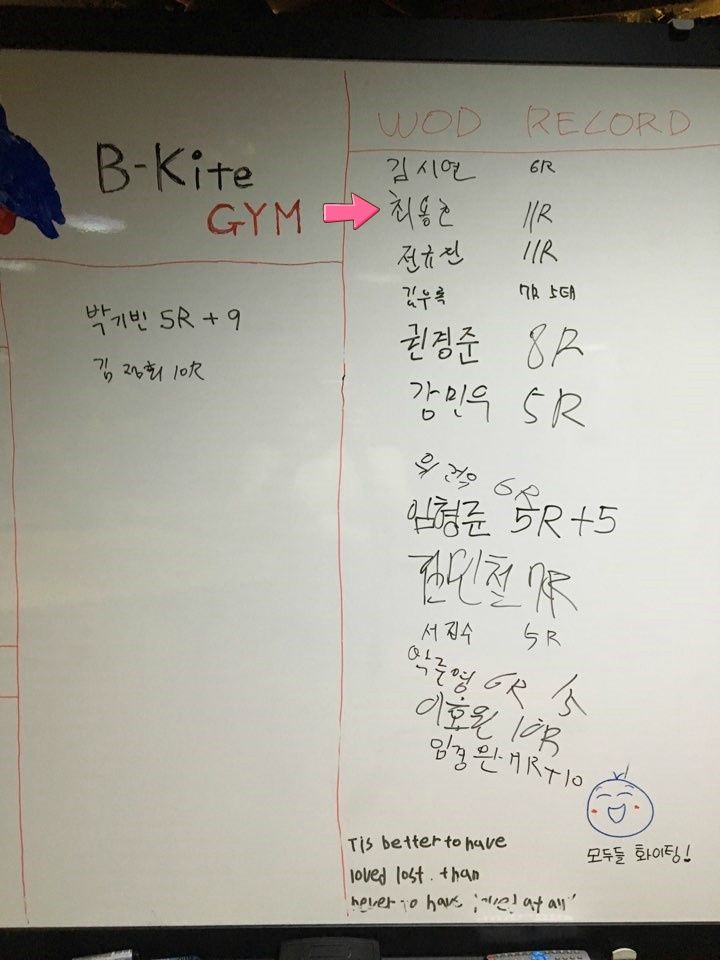 B-Kite
GYM
박기빈 5R + 9
김 정희 10R
WOD RECORD
김시연 6R
최용호 11R
전규진 11R
김우록 7R 5대
권경준 8R
강민욱 5R
6R
임형준 5R+5
민철 7R
서진수 5R
6R
이호원 10R
임경완 7R+10
모두들 화이팅!
Tis better to have
loved lost. than
never to have at all